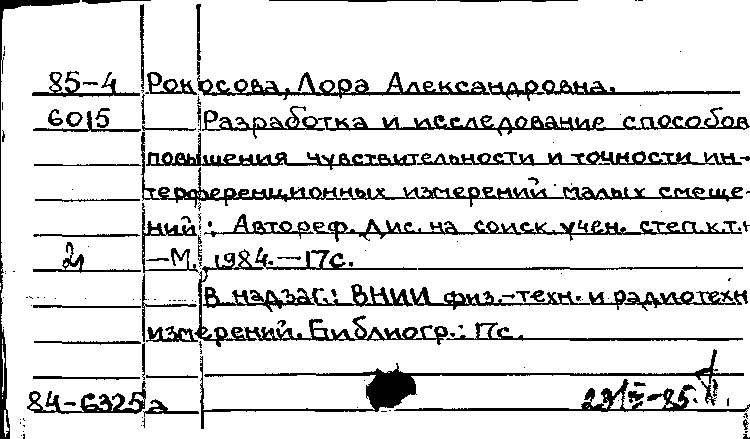 85-4 Рокосова, Лора Александровна.
6015 Разработка и исследование способов
повышения чувствительности и точности ин-
терференционных измерений малых смеще-
ний : Автореф. дис. на соиск. учен. степ. к.т.н
2 —М., 1984.—17с.
В надзаг.: ВНИИ физ.-техн. и радиотехн
измерений. Библиогр.: 17с.
84-6325а